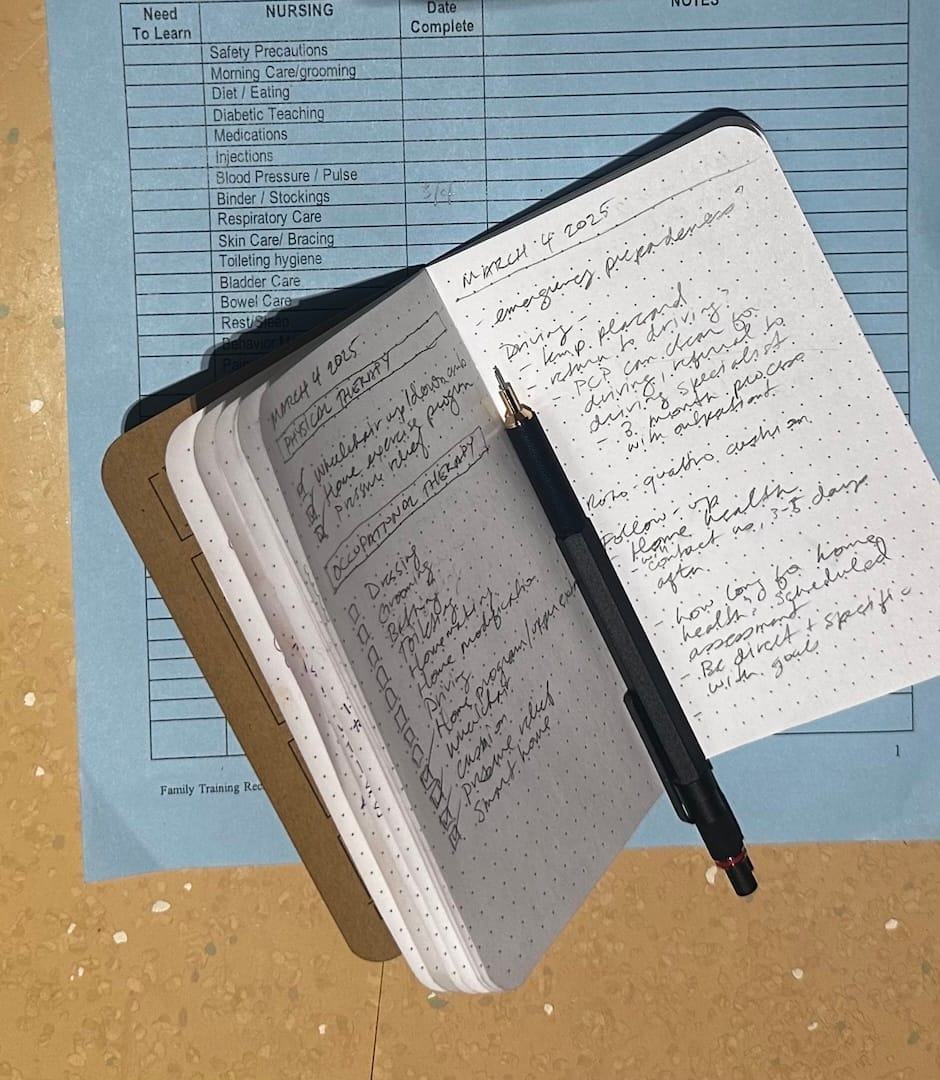 Need To Learn
NURSING
Date Complete
NOTES
Safety Precautions
Morning Care/grooming
Diet / Eating
Diabetic Teaching
Medications
Injections
Blood Pressure / Pulse
Binder / Stockings
Respiratory Care
Skin Care/ Bracing
Toileting hygiene
Bladder Care
Bowel Care
Rest/Sleep
Behavior M
Pai
Family Training Rec
1
MARCH 4 2025
PHYSICAL THERAPY
Wheelchair up/down
Home exercise
Pressure relief program
OCCUPATIONAL THERAPY
Dressing
Grooming
Bathing
Toileting
Homemaking
Home modification
Driving
Home program/
Wheelchair
Cushion
Pressure relief
Smart home
MARCH · 4 2025
- emergency preparedness?
Driving -
- placard
- return to driving?
- PCP can clear for
driving, referral to
driving specialist
- 3 month process
with outpatient
Roho - quattro cushion
Follow-up
- Home health
will
contact us, 3-5 days
after
- how long for home
health? scheduled
assessment
- Be direct + specific
with goals
-